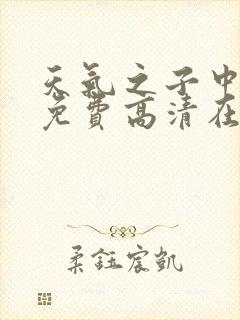 天氣之子中
免費高清在
柔鈺宸凱